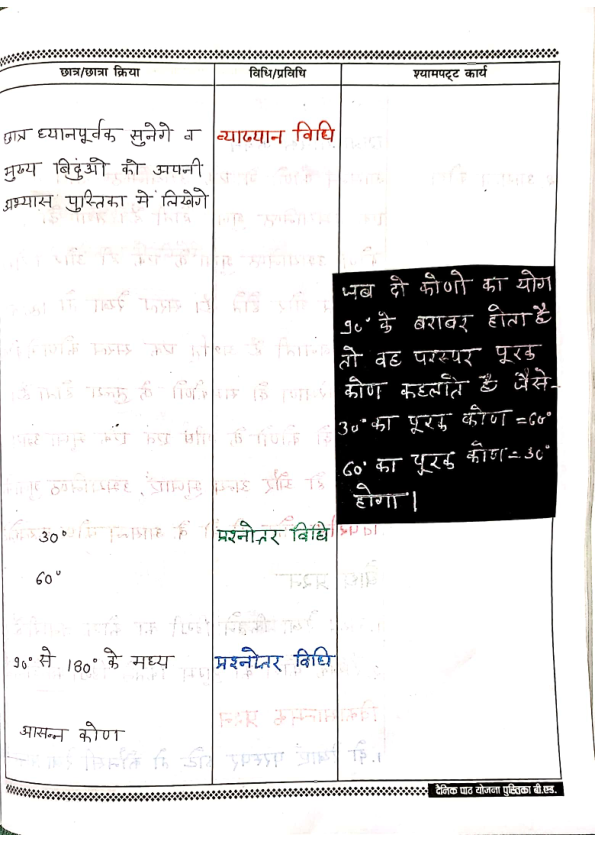 छात्र/छात्रा क्रिया
विधि/प्रविधि
श्यामपट्ट कार्य
छात्र ध्यानपूर्वक सुनेगे व
मुख्य बिदुंओ को अपनी
अभ्यास पुस्तिका में लिखेगे
व्याख्यान विधि
जब दो कोणो का योग
90° के बराबर होता है
तो वह परस्पर पूरक
कोण कहलाते है जैसे-
30° का पूरक कोण = 60°
60° का पूरक कोण = 30°
होगा।
30°
60°
प्रश्नोत्तर विधि
90° से 180° के मध्य
प्रश्नोत्तर विधि
आसन्न कोण
दैनिक पाठ योजना पुस्तिका बी.एड.